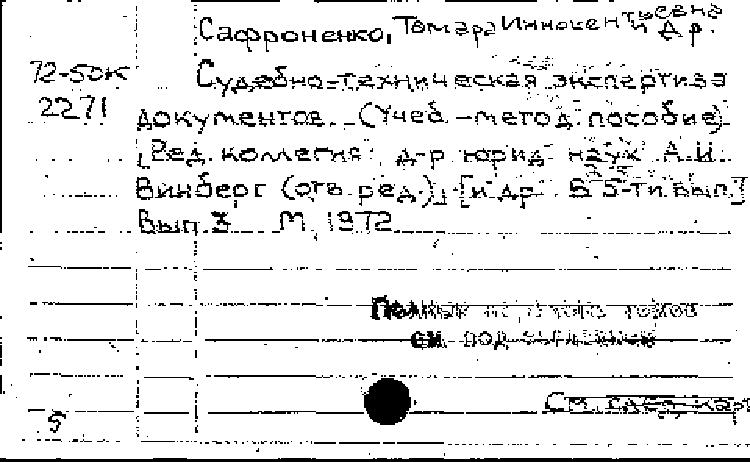 Сафроненко, Тамара Иннокентьевна и др.
72-50к Судебно-техническая экспертиза
2271 документов. (Учеб.-метод. пособие)
[Ред. коллегия: д-р юрид. наук А.И.
Винберг (отв. ред.)] [и др. В 5-ти вып.]
Вып. 3 М, 1972
Полный перечень томов
см. под заглавием
См. след. карт
5